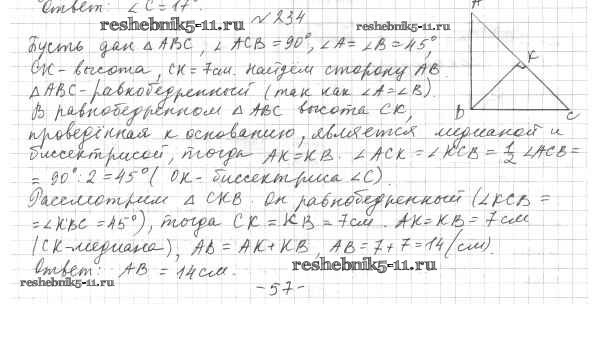 Ответ: ∠C = 17°.
reshebnik5-11.ru
№ 234
reshebnik5-11.ru
Пусть дан △ ABC, ∠ ACB = 90°, ∠A = ∠B = 45°,
CK - высота, CK = 7см. Найдем сторону AB.
△ABC - равнобедренный (так как ∠A = ∠B).
В равнобедренном △ ABC высота CK,
проведённая к основанию, является медианой и
биссектрисой, тогда AK = KB. ∠ACK = ∠KCB = 1/2 ∠ACB =
= 90° : 2 = 45° ( CK - биссектриса ∠C).
Рассмотрим △ CKB. Он равнобедренный (∠KCB =
= ∠KBC = 45°), тогда CK = KB = 7см. AK = KB = 7см
(CK - медиана), AB = AK + KB, AB = 7 + 7 = 14 (см).
Ответ: AB = 14см.
reshebnik5-11.ru
reshebnik5-11.ru
- 57 -
A
K
B
C